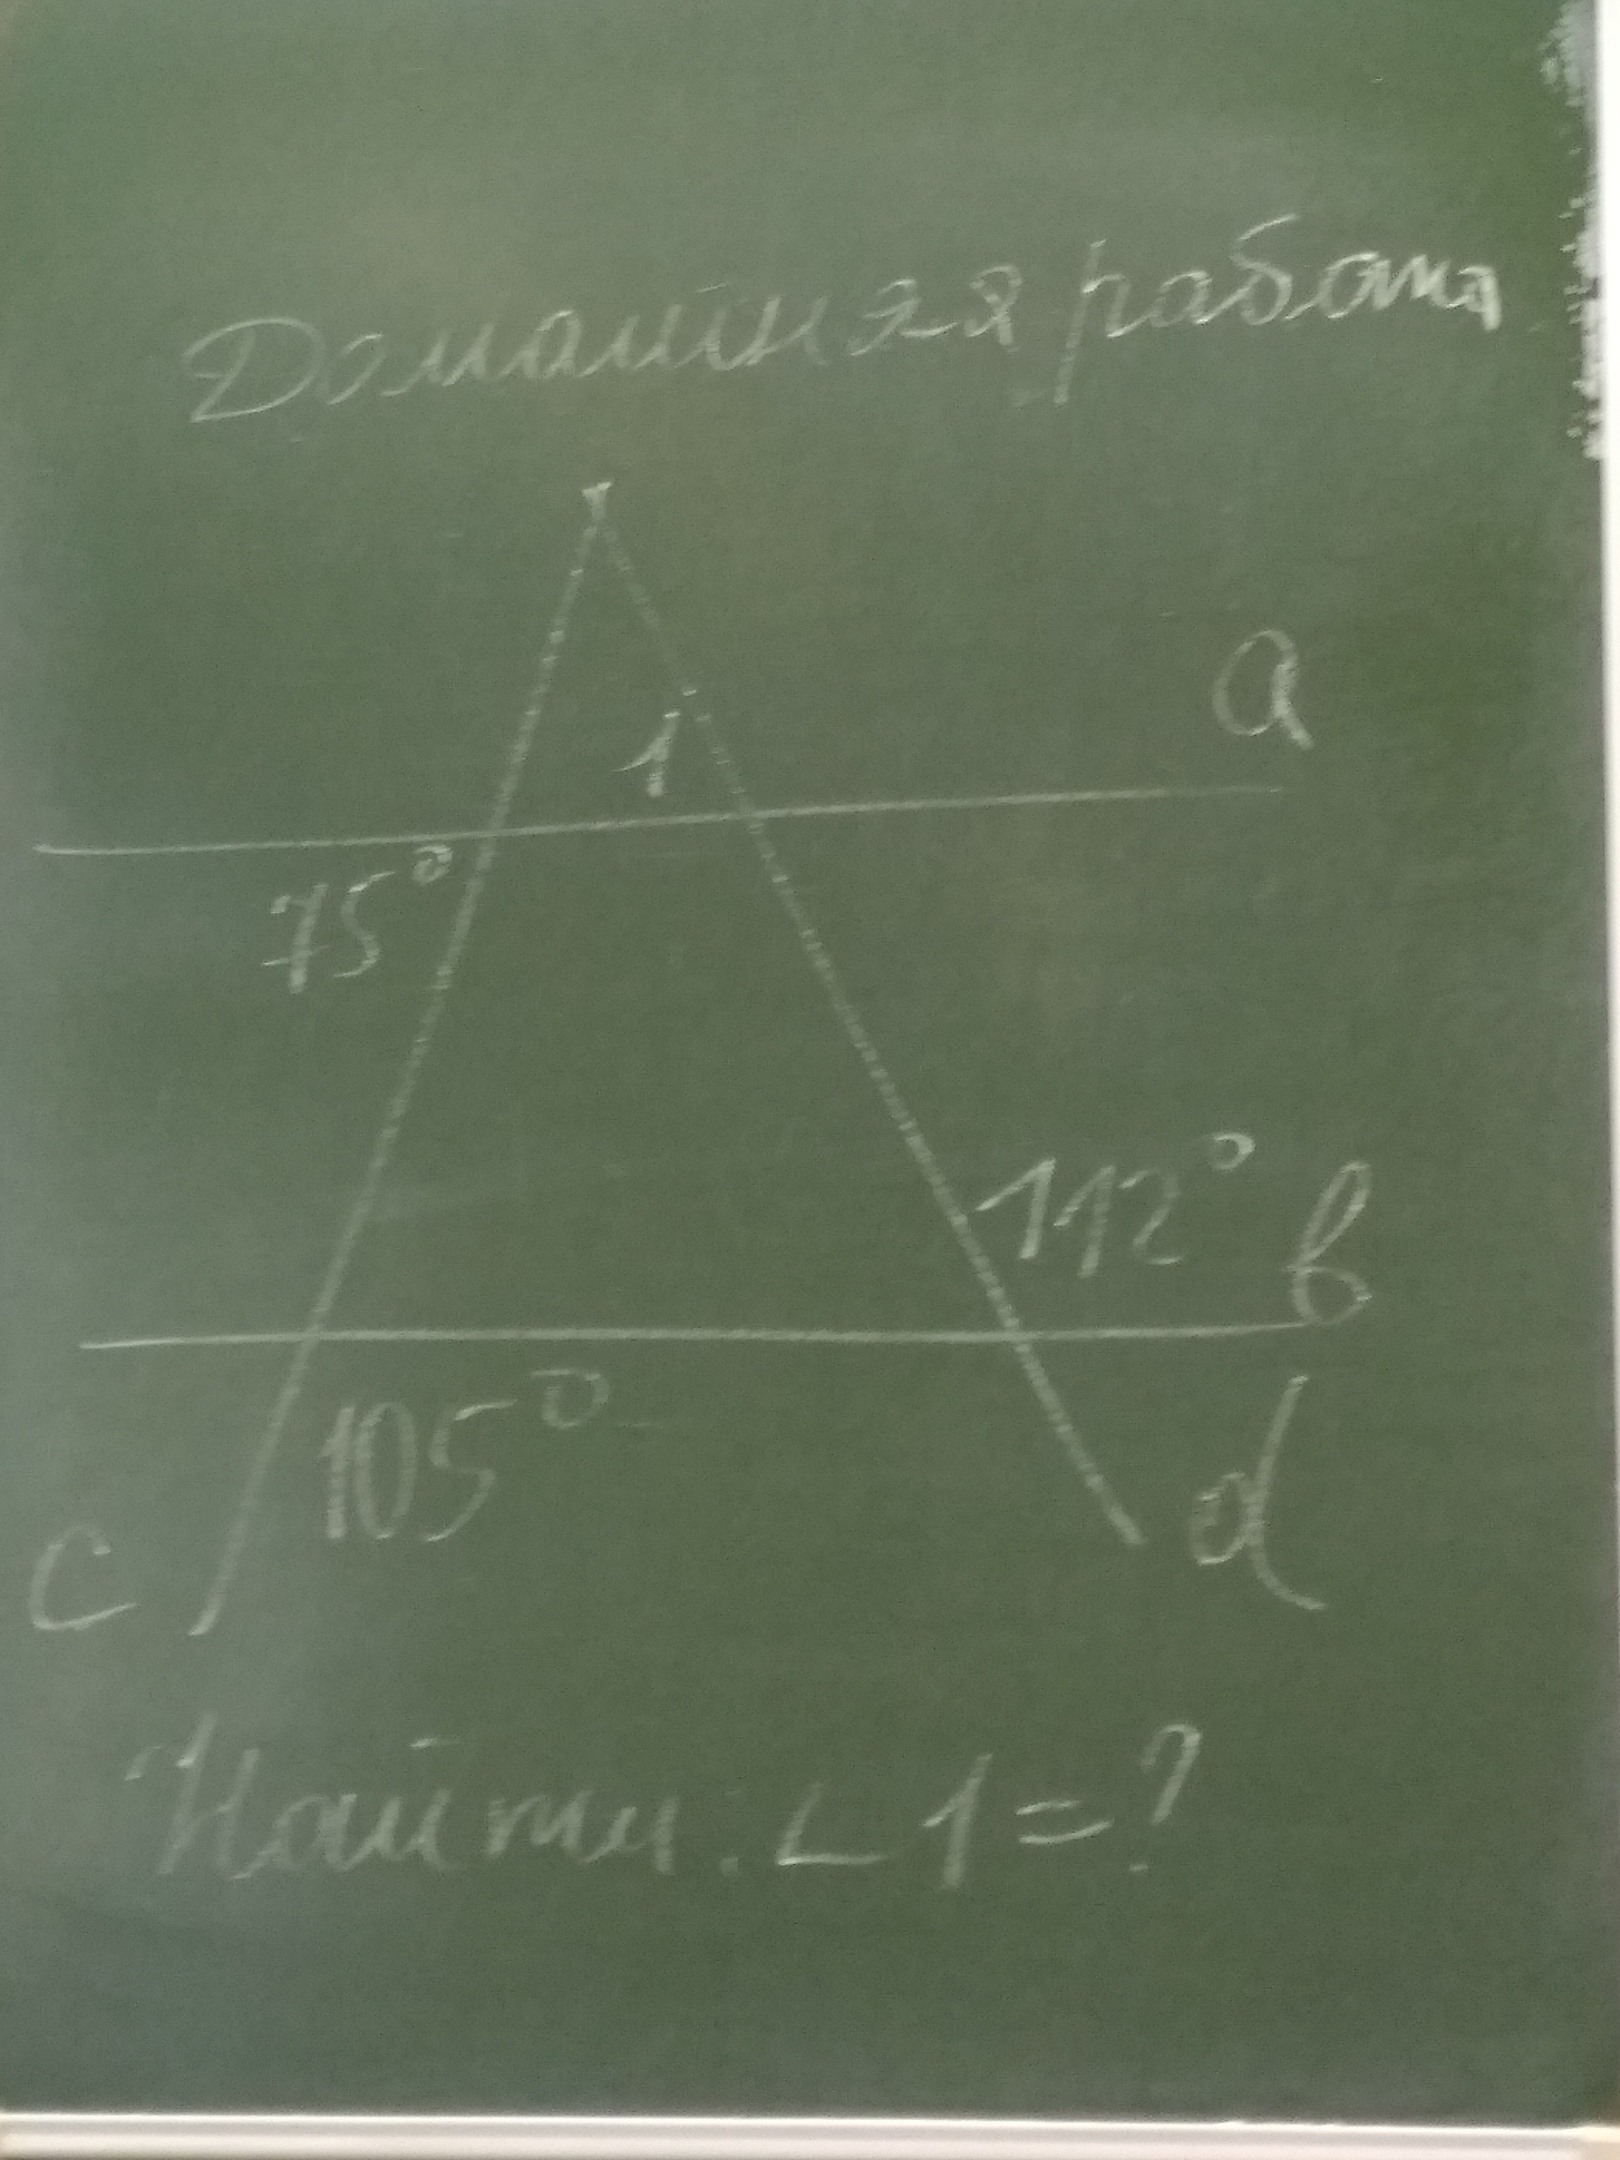 Домашняя работа
a
1
75°
112° b
105°
c d
Найти: ∠1=?